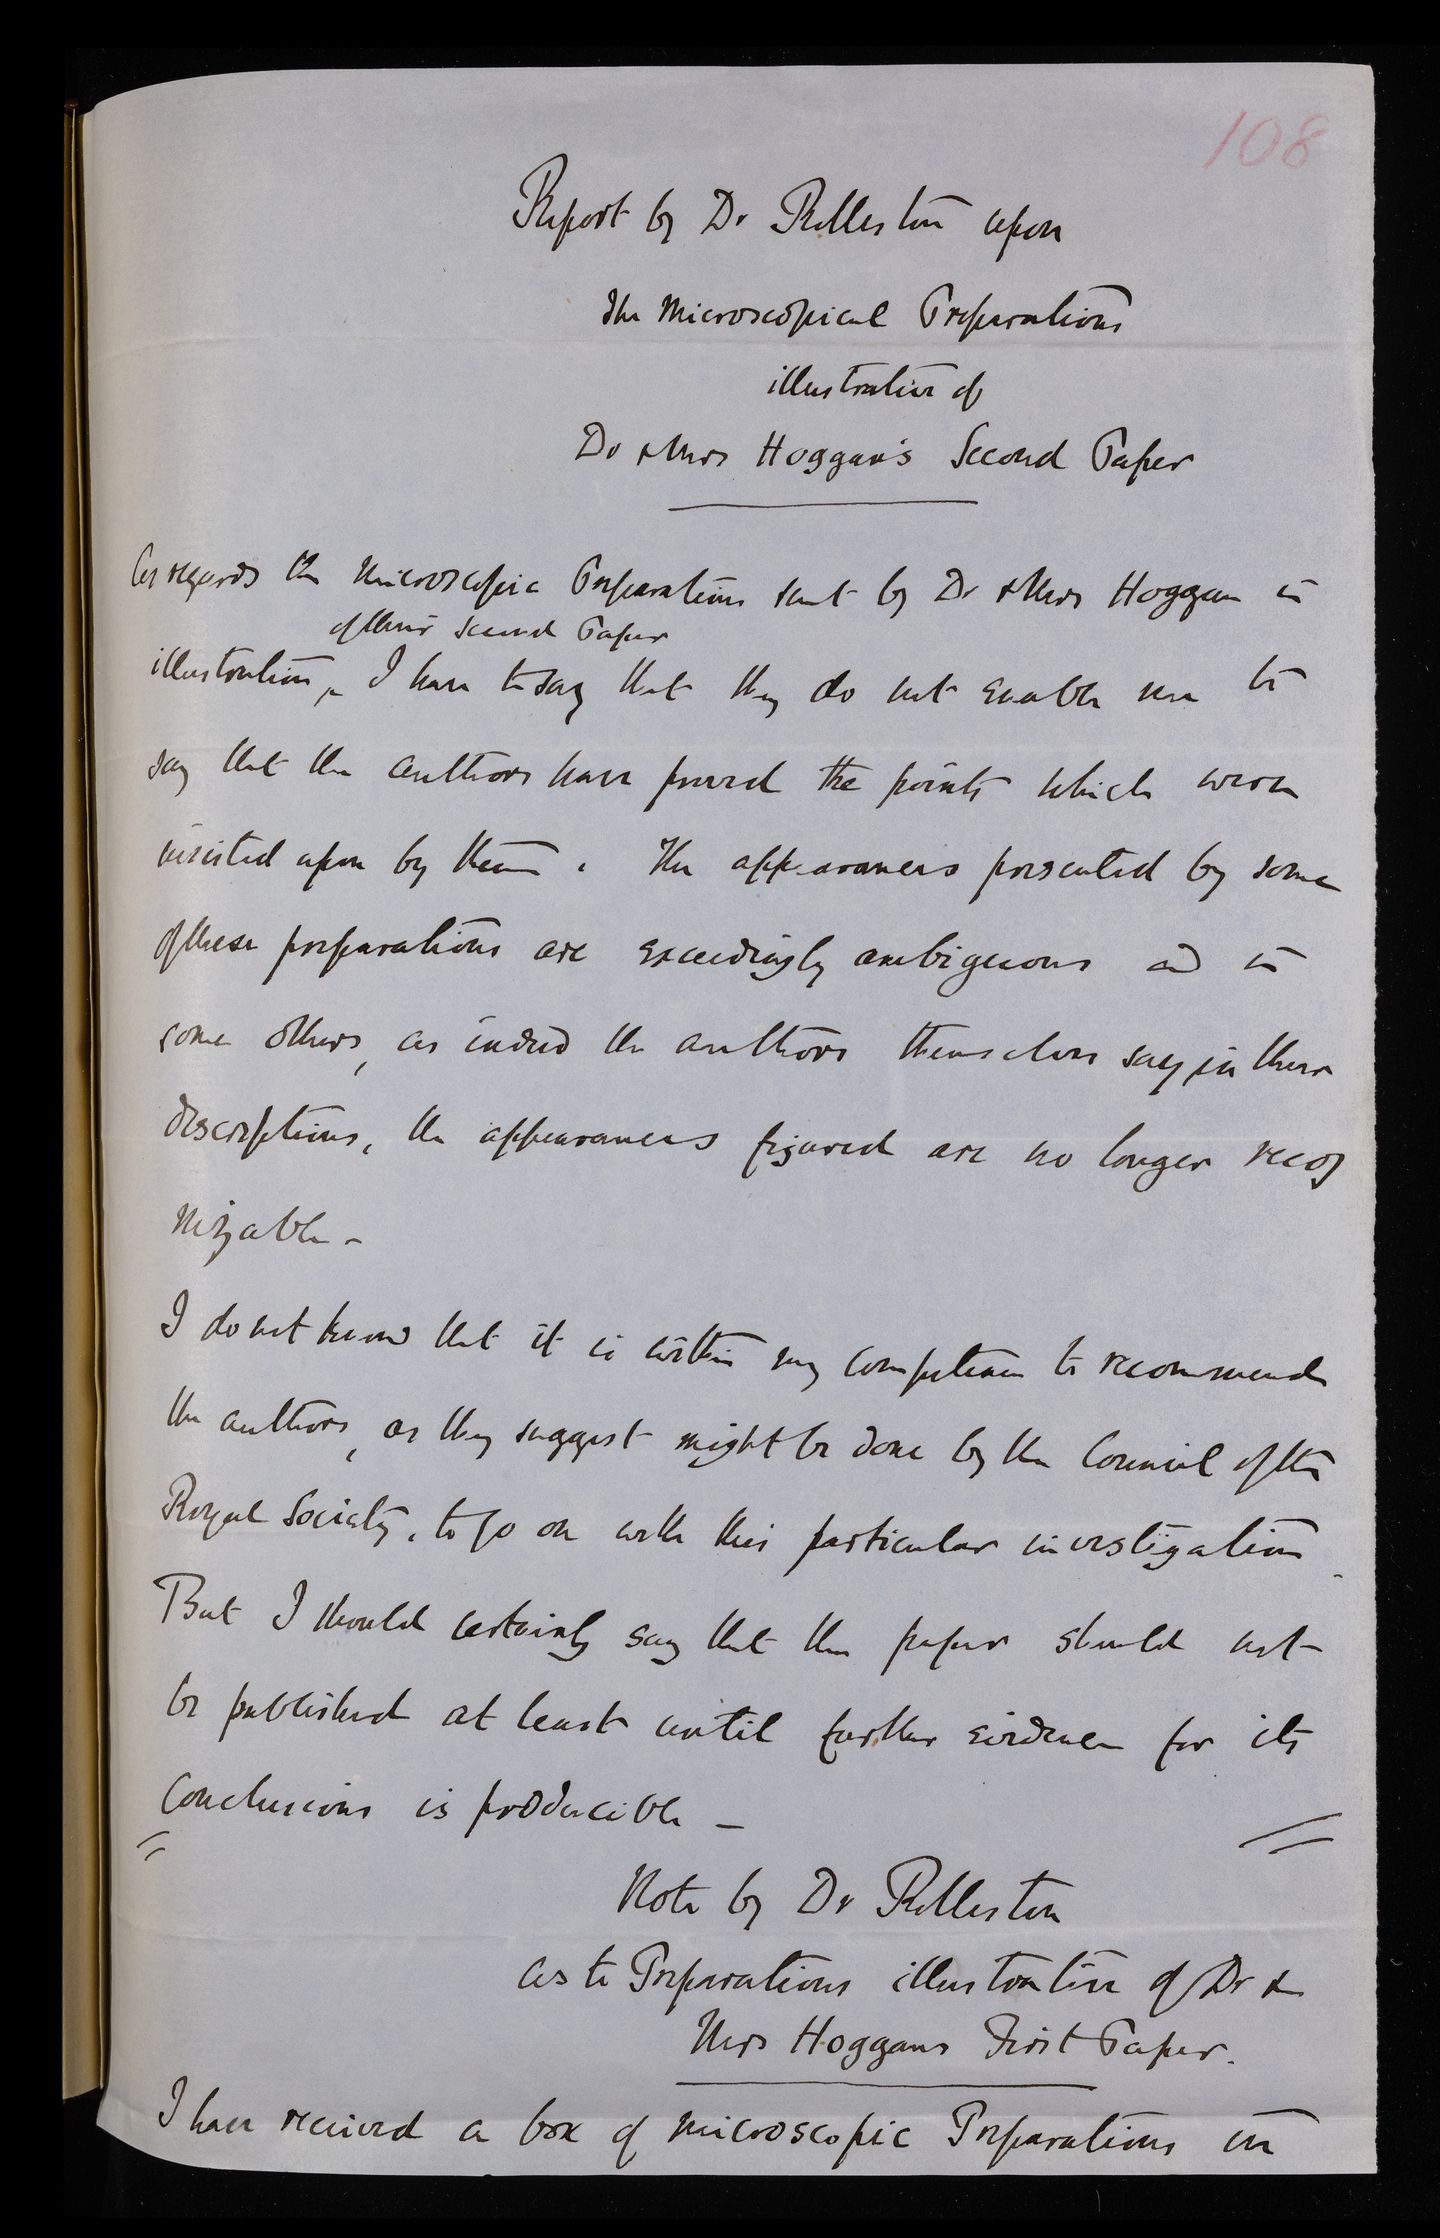 108
Report by Dr Rolleston upon
the Microscopical Preparations
illustrative of
Dr & Mrs Hoggan's Second Paper
As regards the Microscopic Preparations sent by Dr & Mrs Hoggan in
of their second Paper
illustration, I have to say that they do not enable me to
say that the authors have proved the points which were
insisted upon by them. The appearances presented by some
of these preparations are exceedingly ambiguous and in
some others, as indeed the authors themselves say in their
descriptions, the appearances figured are no longer recog
nizable -
I do not know that it is within my competence to recommend
the authors, as they suggest might be done by the Council of the
Royal Society, to go on with this particular investigation.
But I should certainly say that the paper should not
be published at least until further evidence for its
Conclusions is producible -
Note by Dr Rolleston
as to Preparations illustrative of Dr &
Mrs Hoggans First Paper.
I have received a box of microscopic Preparations in